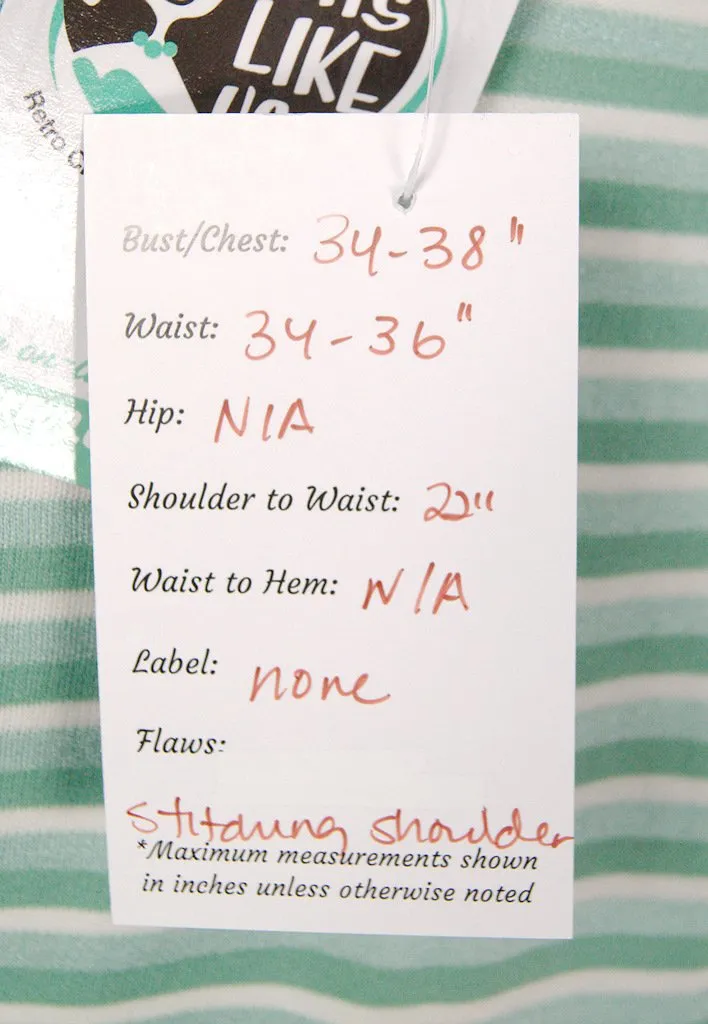 LIKE
Retro
Bust/Chest: 34-38"
Waist: 34-36"
Hip: N/A
Shoulder to Waist: 22"
Waist to Hem: N/A
Label: none
Flaws:
stitching shoulder
*Maximum measurements shown
in inches unless otherwise noted